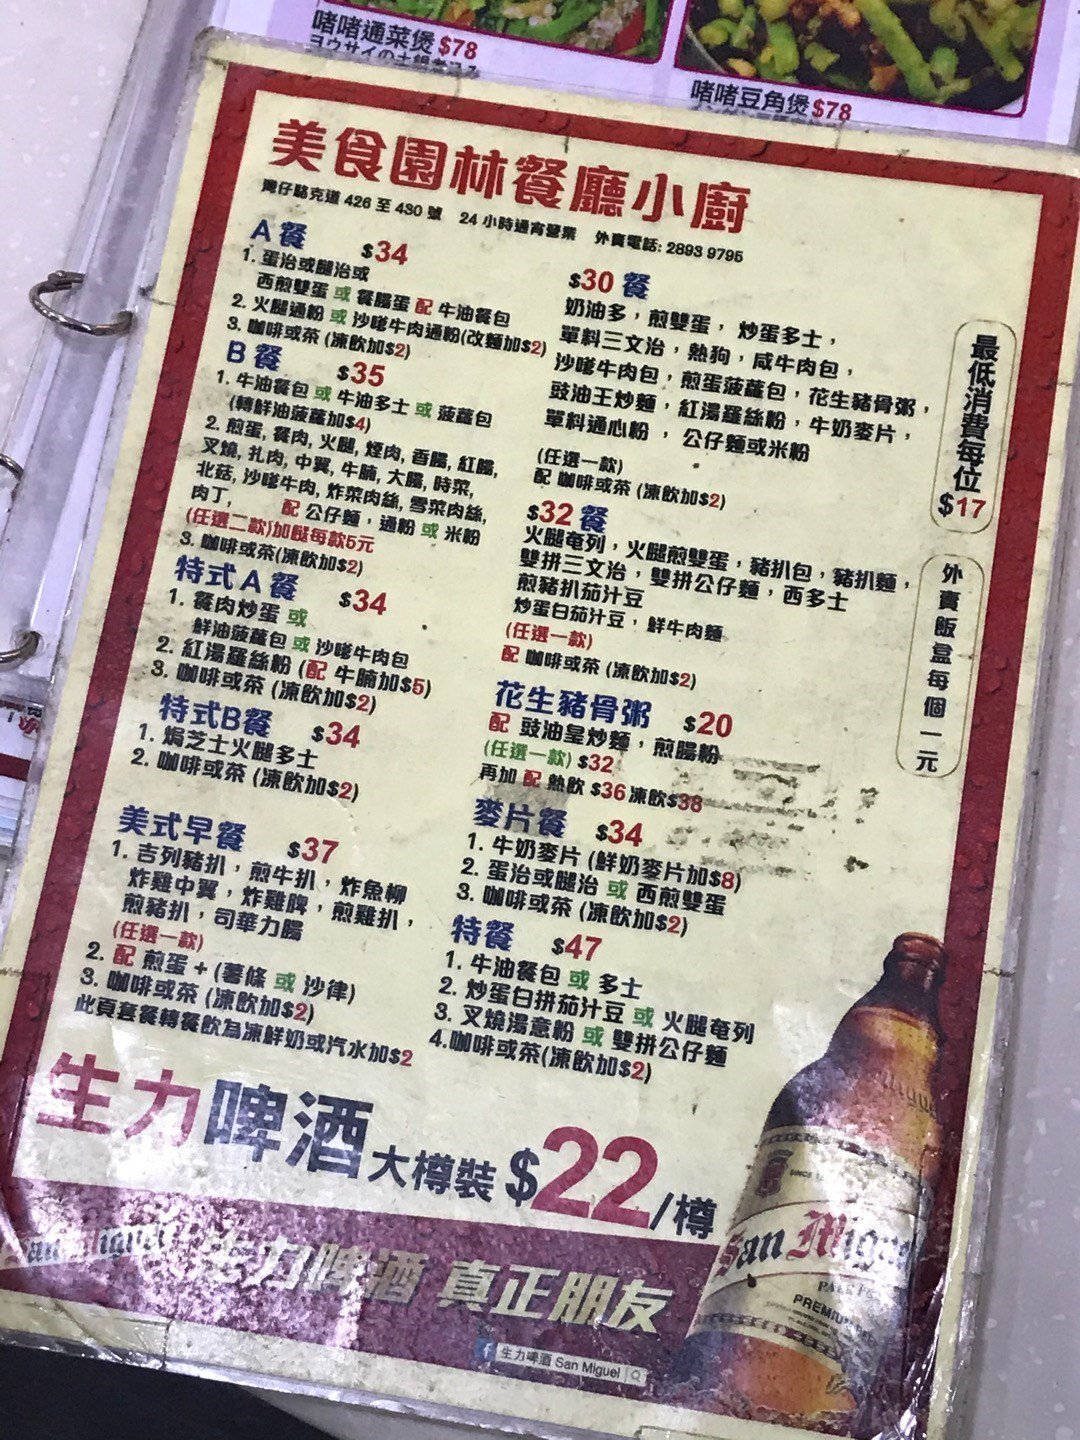 啫啫通菜煲$78
ヨウサイの土鍋煮込み
啫啫豆角煲$78
美食園林餐廳小廚
灣仔駱克道 426 至 430 號 24 小時通宵營業 外賣電話: 2893 9795
A 餐 $34
1. 蛋治或腿治或
西煎雙蛋 或 餐腸蛋 配 牛油餐包
2. 火腿通粉 或 沙嗲牛肉通粉(改麵加$2)
3. 咖啡或茶 (凍飲加$2)
B 餐 $35
1. 牛油餐包 或 牛油多士 或 菠蘿包
(轉鮮油菠蘿加$4)
2. 煎蛋, 餐肉, 火腿, 煙肉, 香腸, 紅腸,
叉燒, 扎肉, 中翼, 牛腩, 大腸, 時菜,
北菇, 沙嗲牛肉, 炸菜肉絲, 雪菜肉絲,
肉丁, 配 公仔麵，通粉 或 米粉
(任選二款)加餸每款5元
3. 咖啡或茶(凍飲加$2)
特式A 餐 $34
1. 餐肉炒蛋 或
鮮油菠蘿包 或 沙嗲牛肉包
2. 紅湯羅絲粉 (配 牛腩加$5)
3. 咖啡或茶 (凍飲加$2)
特式B餐 $34
1. 焗芝士火腿多士
2. 咖啡或茶 (凍飲加$2)
美式早餐 $37
1. 吉列豬扒，煎牛扒，炸魚柳
炸雞中翼，炸雞髀，煎雞扒，
煎豬扒，司華力腸
(任選一款)
2. 配 煎蛋 + (薯條 或 沙律)
3. 咖啡或茶 (凍飲加$2)
此頁套餐轉餐飲為凍鮮奶或汽水加$2
$30 餐
奶油多，煎雙蛋， 炒蛋多士，
單料三文治，熱狗，咸牛肉包，
沙嗲牛肉包，煎蛋菠蘿包，花生豬骨粥，
豉油王炒麵，紅湯羅絲粉，牛奶麥片，
單料通心粉 ， 公仔麵或米粉
(任選一款)
配 咖啡或茶 (凍飲加$2)
$32 餐
火腿奄列，火腿煎雙蛋，豬扒包，豬扒麵，
雙拼三文治，雙拼公仔麵，西多士
煎豬扒茄汁豆
炒蛋白茄汁豆，鮮牛肉麵
(任選一款)
配 咖啡或茶 (凍飲加$2)
花生豬骨粥 $20
配 豉油皇炒麵，煎腸粉
(任選一款) $32
再加 配 熱飲 $36 凍飲$38
麥片餐 $34
1. 牛奶麥片 (鮮奶麥片加$8)
2. 蛋治或腿治 或 西煎雙蛋
3. 咖啡或茶 (凍飲加$2)
特餐 $47
1. 牛油餐包 或 多士
2. 炒蛋白拼茄汁豆 或 火腿奄列
3. 叉燒湯意粉 或 雙拼公仔麵
4.咖啡或茶(凍飲加$2)
最低消費每位$17
外賣飯盒每個一元
生力啤酒大樽裝 $22/樽
San Miguel
PREMIUM
San Miguel 生力啤酒 真正朋友
生力啤酒 San Miguel